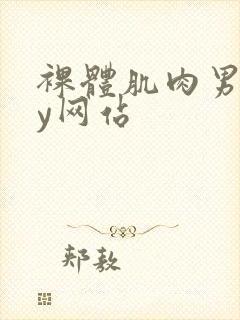 裸體肌肉男
y网佔
郏敖